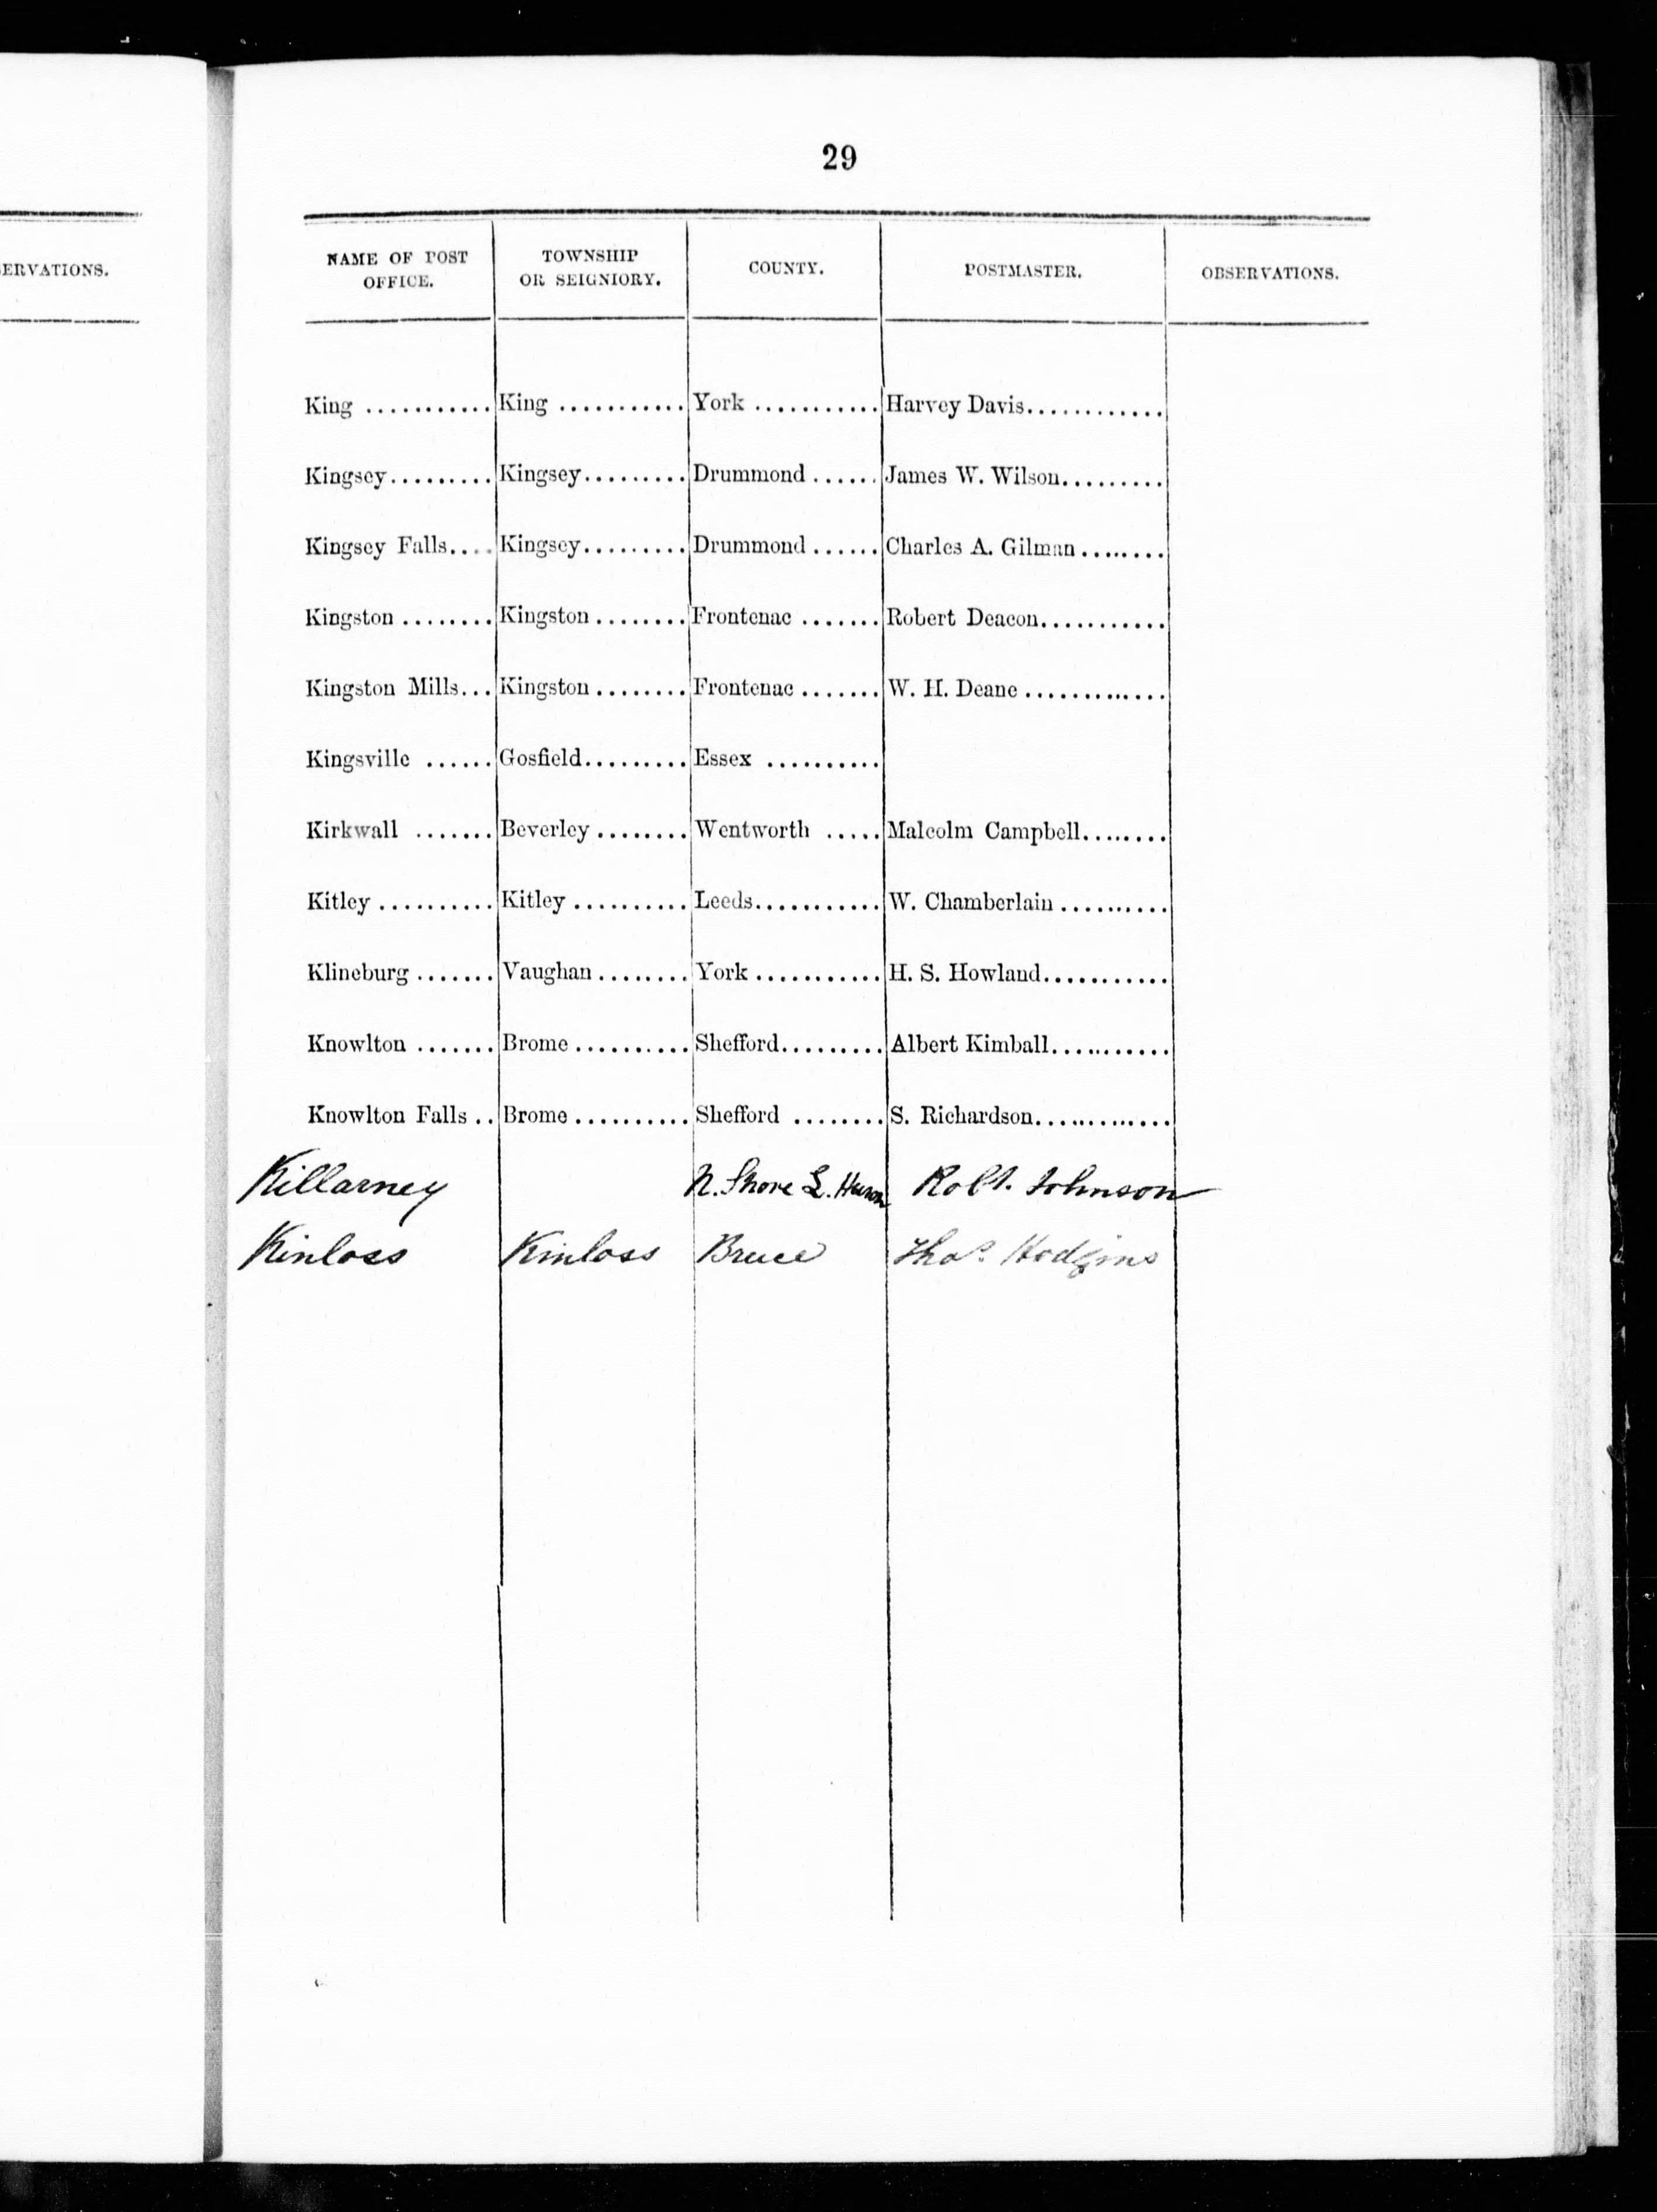 ERVATIONS.
29
NAME OF POST OFFICE. TOWNSHIP OR SEIGNIORY. COUNTY. POSTMASTER. OBSERVATIONS.
King ........... King ........... York ........... Harvey Davis............
Kingsey......... Kingsey......... Drummond ...... James W. Wilson.........
Kingsey Falls.... Kingsey......... Drummond ...... Charles A. Gilman ........
Kingston ........ Kingston ........ Frontenac ....... Robert Deacon...........
Kingston Mills... Kingston ........ Frontenac ....... W. H. Deane ............
Kingsville ...... Gosfield......... Essex ..........
Kirkwall ....... Beverley ........ Wentworth ..... Malcolm Campbell........
Kitley .......... Kitley .......... Leeds........... W. Chamberlain ..........
Klineburg ....... Vaughan ........ York ........... H. S. Howland...........
Knowlton ....... Brome .......... Shefford......... Albert Kimball...........
Knowlton Falls .. Brome .......... Shefford ........ S. Richardson............
Killarney N. Shore L. Huron Robt. Johnson
Kinloss Kinloss Bruce Thos. Hodgins